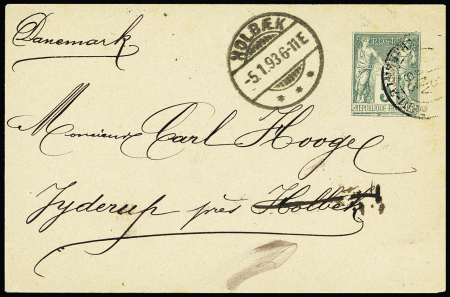 Danemark
HOLBÆK
-5.1.93 6-11E
POSTES
5
RÉPUBLIQUE
Monsieur Carl Hooge
Jyderup près Holbek